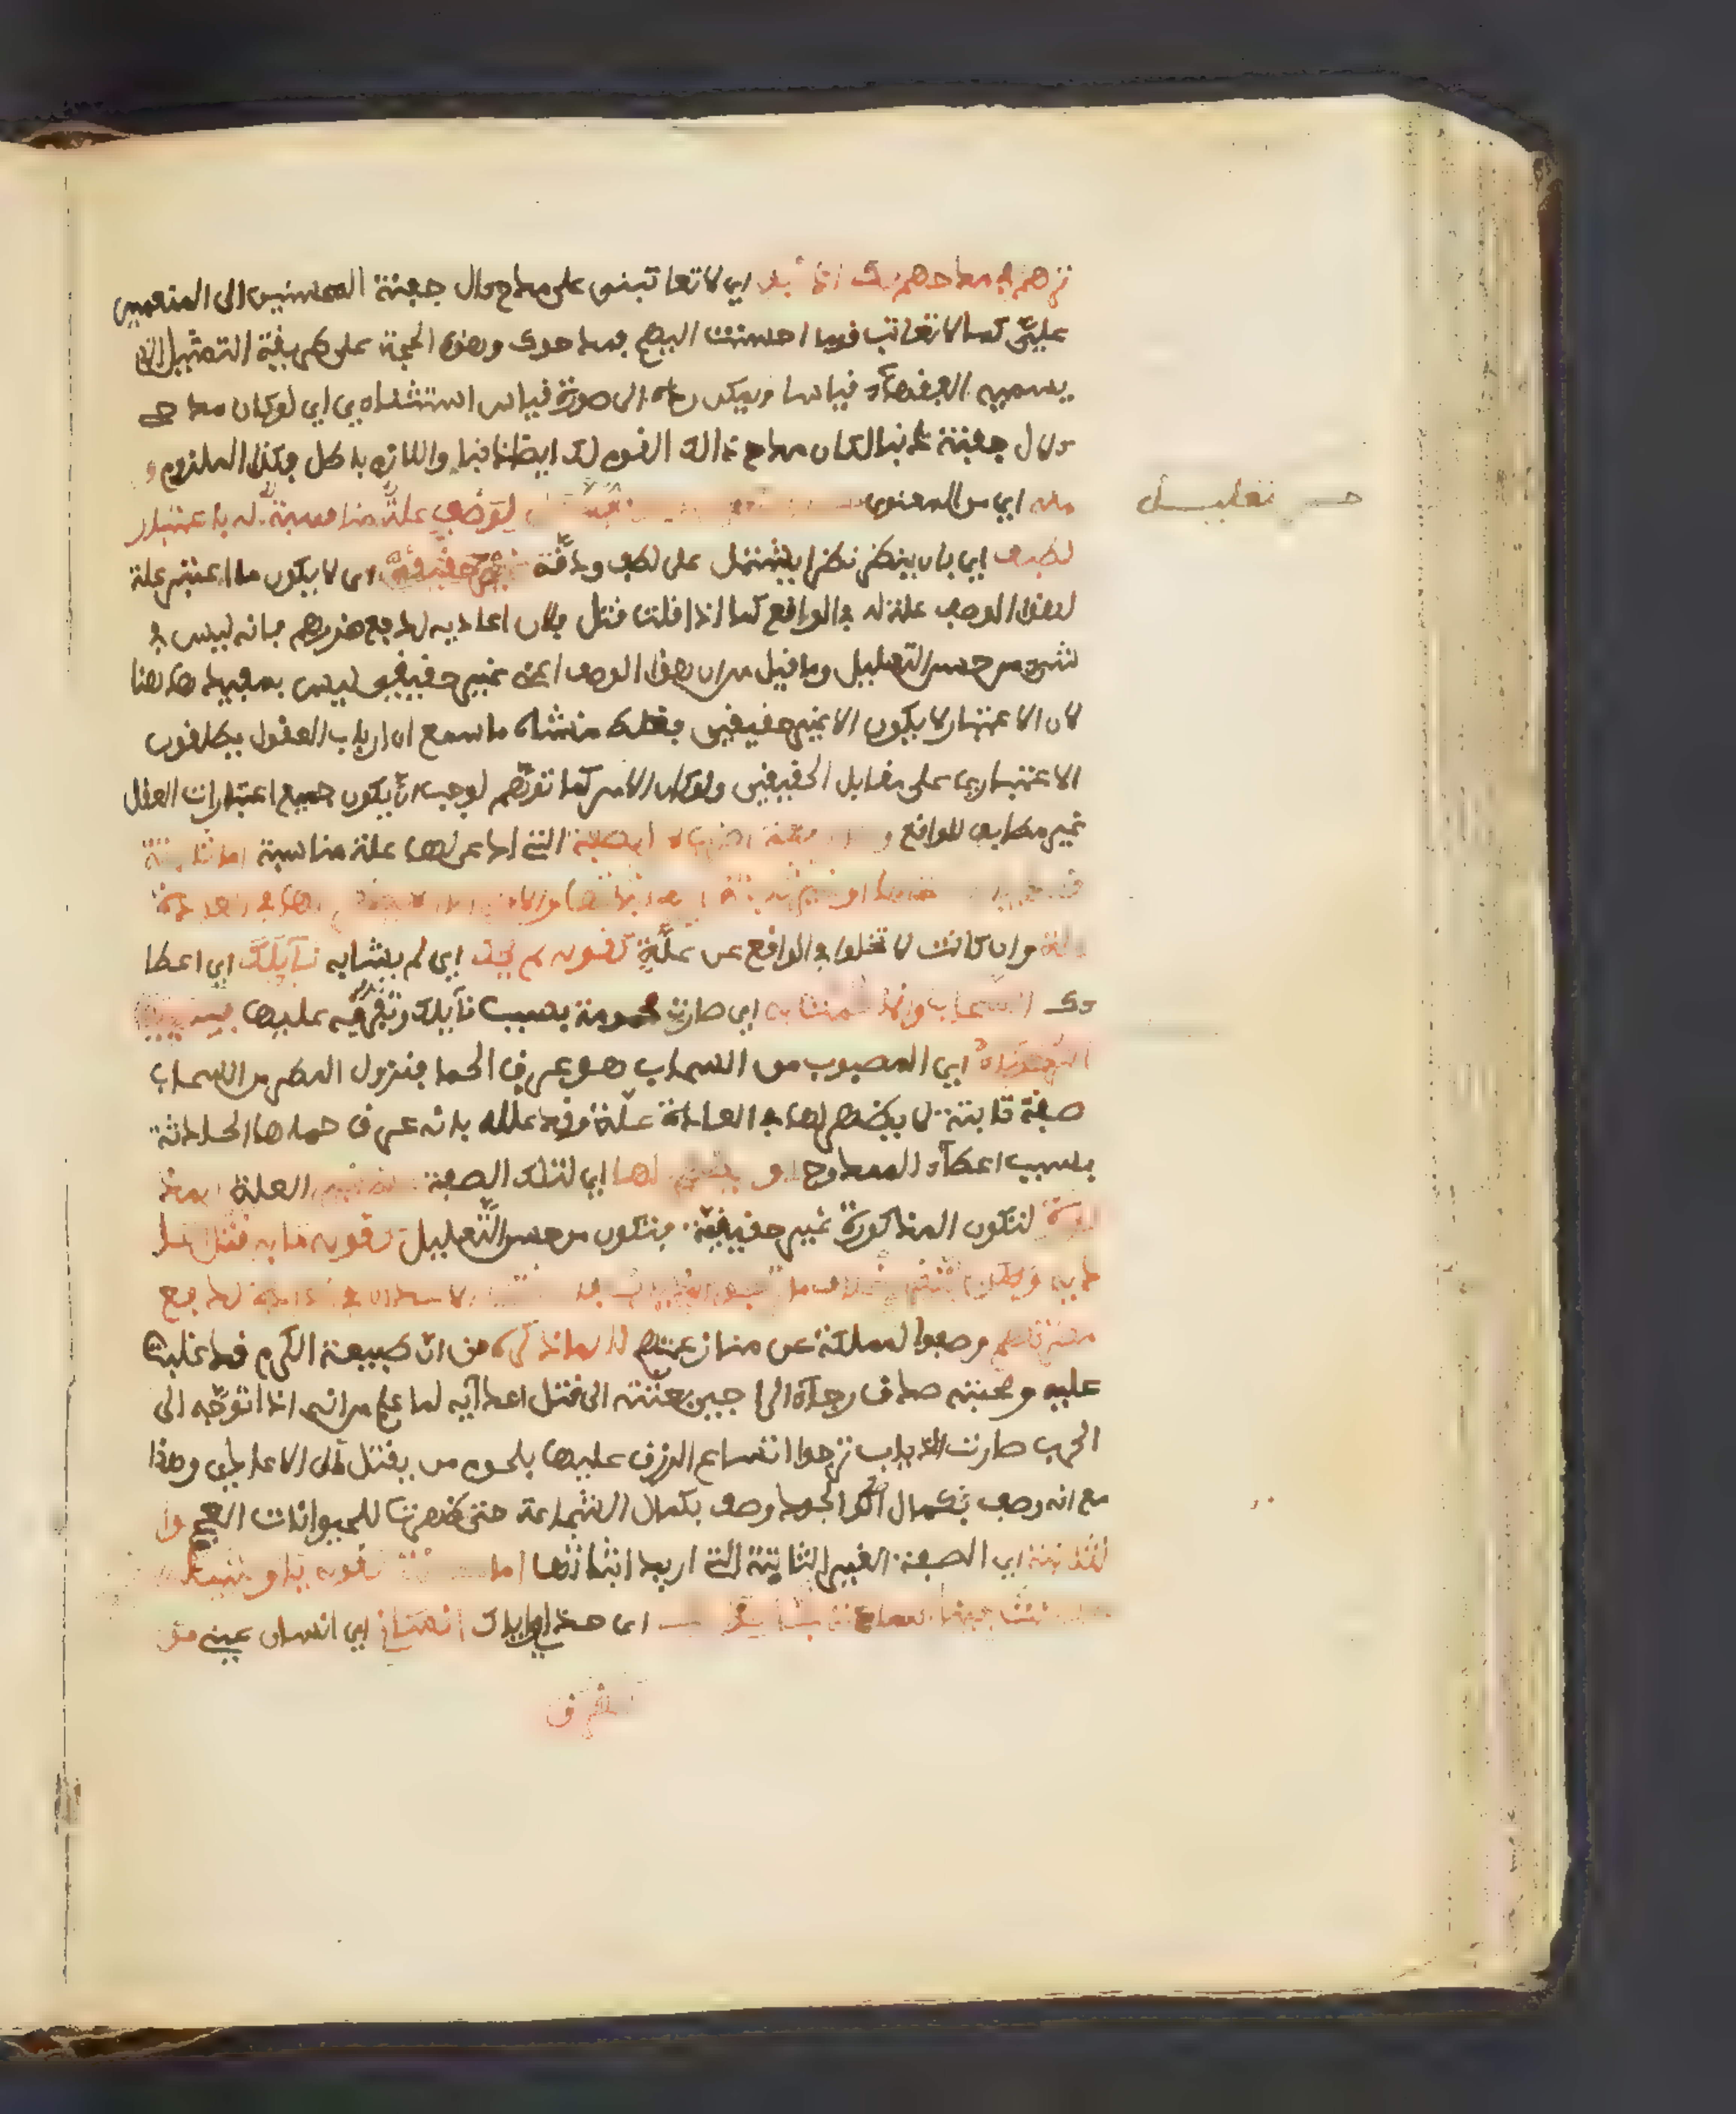 ترهم في مدحهم لك اذنبوا اي لا تعاتبني على مدح ءال جفنة المحسنين الي المنعمين
علي كما لا تعاتب قوما احسنت اليهم فمدحوك وهذه الحجة على طريقة التمثيل الذي
يسميه الفقهآء قياسا ويمكن رده الى صورة قياس استثناءي اي لو كان مدحي
ءال جفنة ذنبا لكان مدح ذالك القوم لك ايضا ذنبا واللازم باطل فكذا الملزوم و
منه اي من المعنوي لوصف علة مناسبة له باعتبار
حسن تعليل
لطيف اي بان ينظر نظرا يشتمل على لطف ودقة غير حقيقي اى لا يكون ما اعتبر علة
لهذا الوصف علة له في الواقع كما اذا قلت قتل فلان اعاديه لدفع ضررهم فانه ليس في
شيء من حسن التعليل وما قيل من ان هذا الوصف اعنى غير حقيقي ليس بمفيد ههنا
لان الاعتبار لا يكون الا غير حقيقي فغلط منشاه ما سمع ان ارباب العقول يطلقون
الاعتباري على مقابل الحقيقي ولو كان الامر كما توهم لوجب ان يكون جميع اعتبارات العقل
غير مطابق للواقع و الصفة التي ادعى لها علة مناسبة اما ثابتة
قصد بيان علتها او غير ثابتة اريد اثباتها والاولى اما ان لا يظهر لها في العادة
علة وان كانت لا تخلوا في الواقع عن علة كقوله لم يحك اي لم يشابه نآيلك اي اعطا
ءك السحاب وانما حمت به اي صارت محمومة بسبب نآيلك وتفوقه عليها فصبيبها
الرحضاء اي المصبوب من السحاب هو عرق الحما فنزول المطر من السحاب
صفة ثابتة لا يظهر لها في العادة علة وقد علله بانه عرق حماها الحادثة
بسبب اعطآء الممدوح او يظهر لها اي لتلك الصفة غير العلة المذ
كورة لتكون المذكورة غير حقيقية فتكون من حسن التعليل كقوله ما به قتل اعا
ديه ولكن يتقي اخلاف ما ترجو الذياب فان قتل الاعداء في العادة لدفع
مضرتهم وصفوا لمملكة عن منازعتهم لا لما ذكره من ان طبيعة الكرم قد غلبت
عليه ومحبته صدق رجآء الراجين بعثته الى قتل اعدآيه لما علم من انه اذا توجه الى
الحرب صارت الذياب ترجوا اتساع الرزق عليها بلحوم من يقتل من الاعادي وهذا
مع انه وصف بكمال الجود وصف بكمال الشجاعة حتى ظهرت للحيوانات العجم وا
لثانية اي الصفة الغير الثابتة التي اريد اثباتها اما ممكنة كقوله يا واشيا
حسنت فينا اساءته نجى حذارك اى حذاري اياك انساني اي انسان عيني من
الغرق